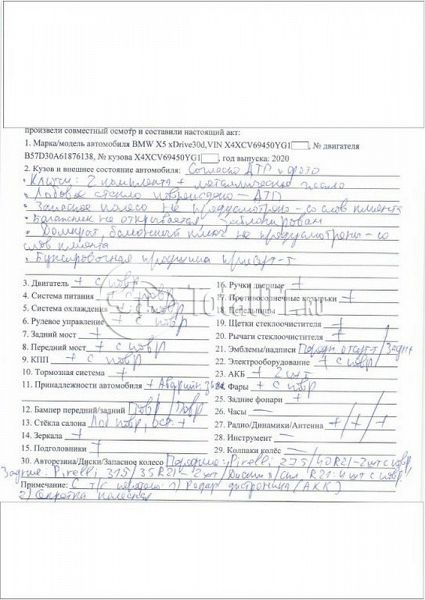 произвели совместный осмотр и составили настоящий акт:
1. Марка/модель автомобиля BMW X5 xDrive30d,VIN X4XCV69450YG1 , № двигателя
B57D30A61876138, № кузова X4XCV69450YG1 , год выпуска: 2020
2. Кузов и внешнее состояние автомобиля: Согласно ДТП и фото
• Ключи: 2 комплекта + металлическое
• Лобовое стекло повреждено – ДТП
• Запасное колесо не предусмотрено – со слов клиента
• Багажник не открывается заблокирован
• Домкрат, балонный ключ не предусмотрены – со
слов клиента
• Буксировочная проушина
3. Двигатель + с повр
4. Система питания + с повр
5. Система охлаждения с повр
6. Рулевое управление + с повр
7. Задний мост +
8. Передний мост + с повр
9. КПП + с повр
10. Тормозная система +
11. Принадлежности автомобиля +
12. Бампер передний/задний повр / повр
13. Стёкла салона Лоб повр, ост +
14. Зеркала +
15. Подголовники +
16. Ручки дверные +
17. Противосолнечные козырьки +
18. Пепельницы
19. Щетки стеклоочистителя +
20. Рычаги стеклоочистителя +
21. Эмблемы/надписи отсут /
22. Электрооборудование + с повр
23. АКБ + 2 шт
24. Фары + с повр
25. Задние фонари +
26. Часы —
27. Радио/Динамики/Антенна + / + / +
28. Инструмент —
29. Колпаки колёс —
30. Авторезина/Диски/Запасное колесо Передние: Pirelli 275/40R21 – 2 шт с повр
Задние: Pirelli 315/35R21 – 2 шт / Диски R21 4 шт с повр
Примечание: С т/с 1)
2)